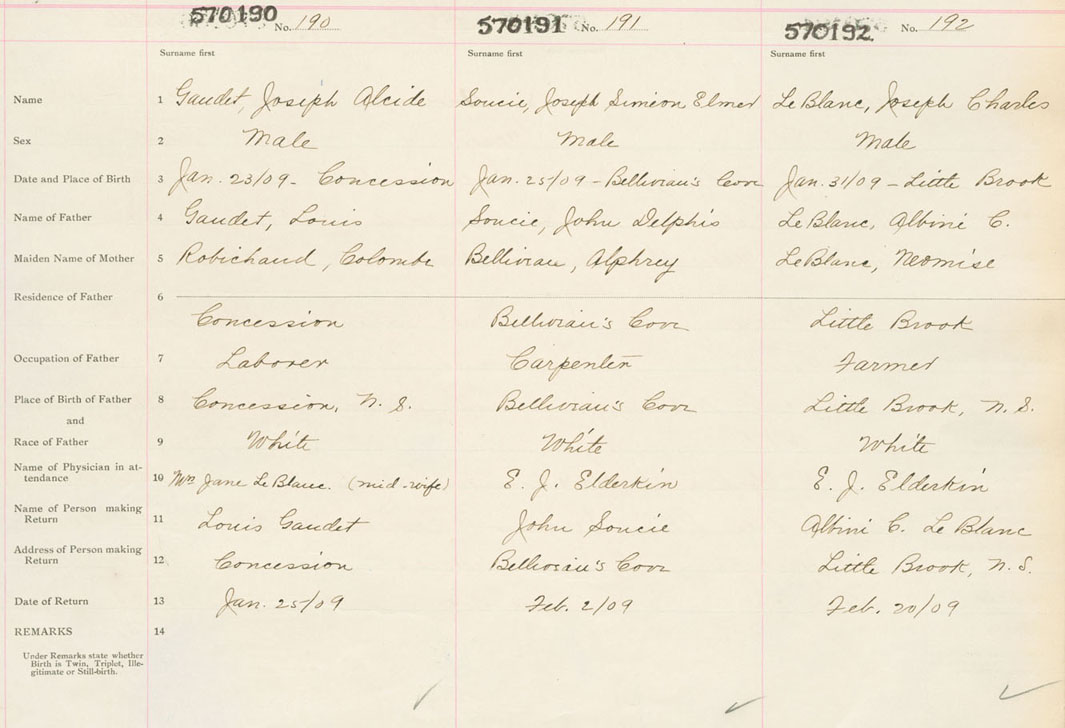 570190 No. 190 570191 No. 191 570192 No. 192
Surname first Surname first Surname first
Name 1 Gaudet, Joseph Alcide Soucie, Joseph Simeon Elmer LeBlanc, Joseph Charles
Sex 2 Male Male Male
Date and Place of Birth 3 Jan. 23/09 - Concession Jan. 25/09 - Bellivian's Cove Jan. 31/09 - Little Brook
Name of Father 4 Gaudet, Louis Soucie, John Delphis LeBlanc, Albini C.
Maiden Name of Mother 5 Robichaud, Colombe Bellivian, Alphrey LeBlanc, Neomise
Residence of Father 6
Concession Bellivian's Cove Little Brook
Occupation of Father 7 Laborer Carpenter Farmer
Place of Birth of Father 8 Concession, N. S. Bellivian's Cove Little Brook, N. S.
and
Race of Father 9 White White White
Name of Physician in at-
tendance 10 Mrs Jane LeBlanc. (mid-wife) E. J. Elderkin E. J. Elderkin
Name of Person making
Return 11 Louis Gaudet John Soucie Albini C. Le Blanc
Address of Person making
Return 12 Concession Bellivian's Cove Little Brook, N. S.
Date of Return 13 Jan. 25/09 Feb. 2/09 Feb. 20/09
REMARKS 14
Under Remarks state whether
Birth is Twin, Triplet, Ille-
gitimate or Still-birth.